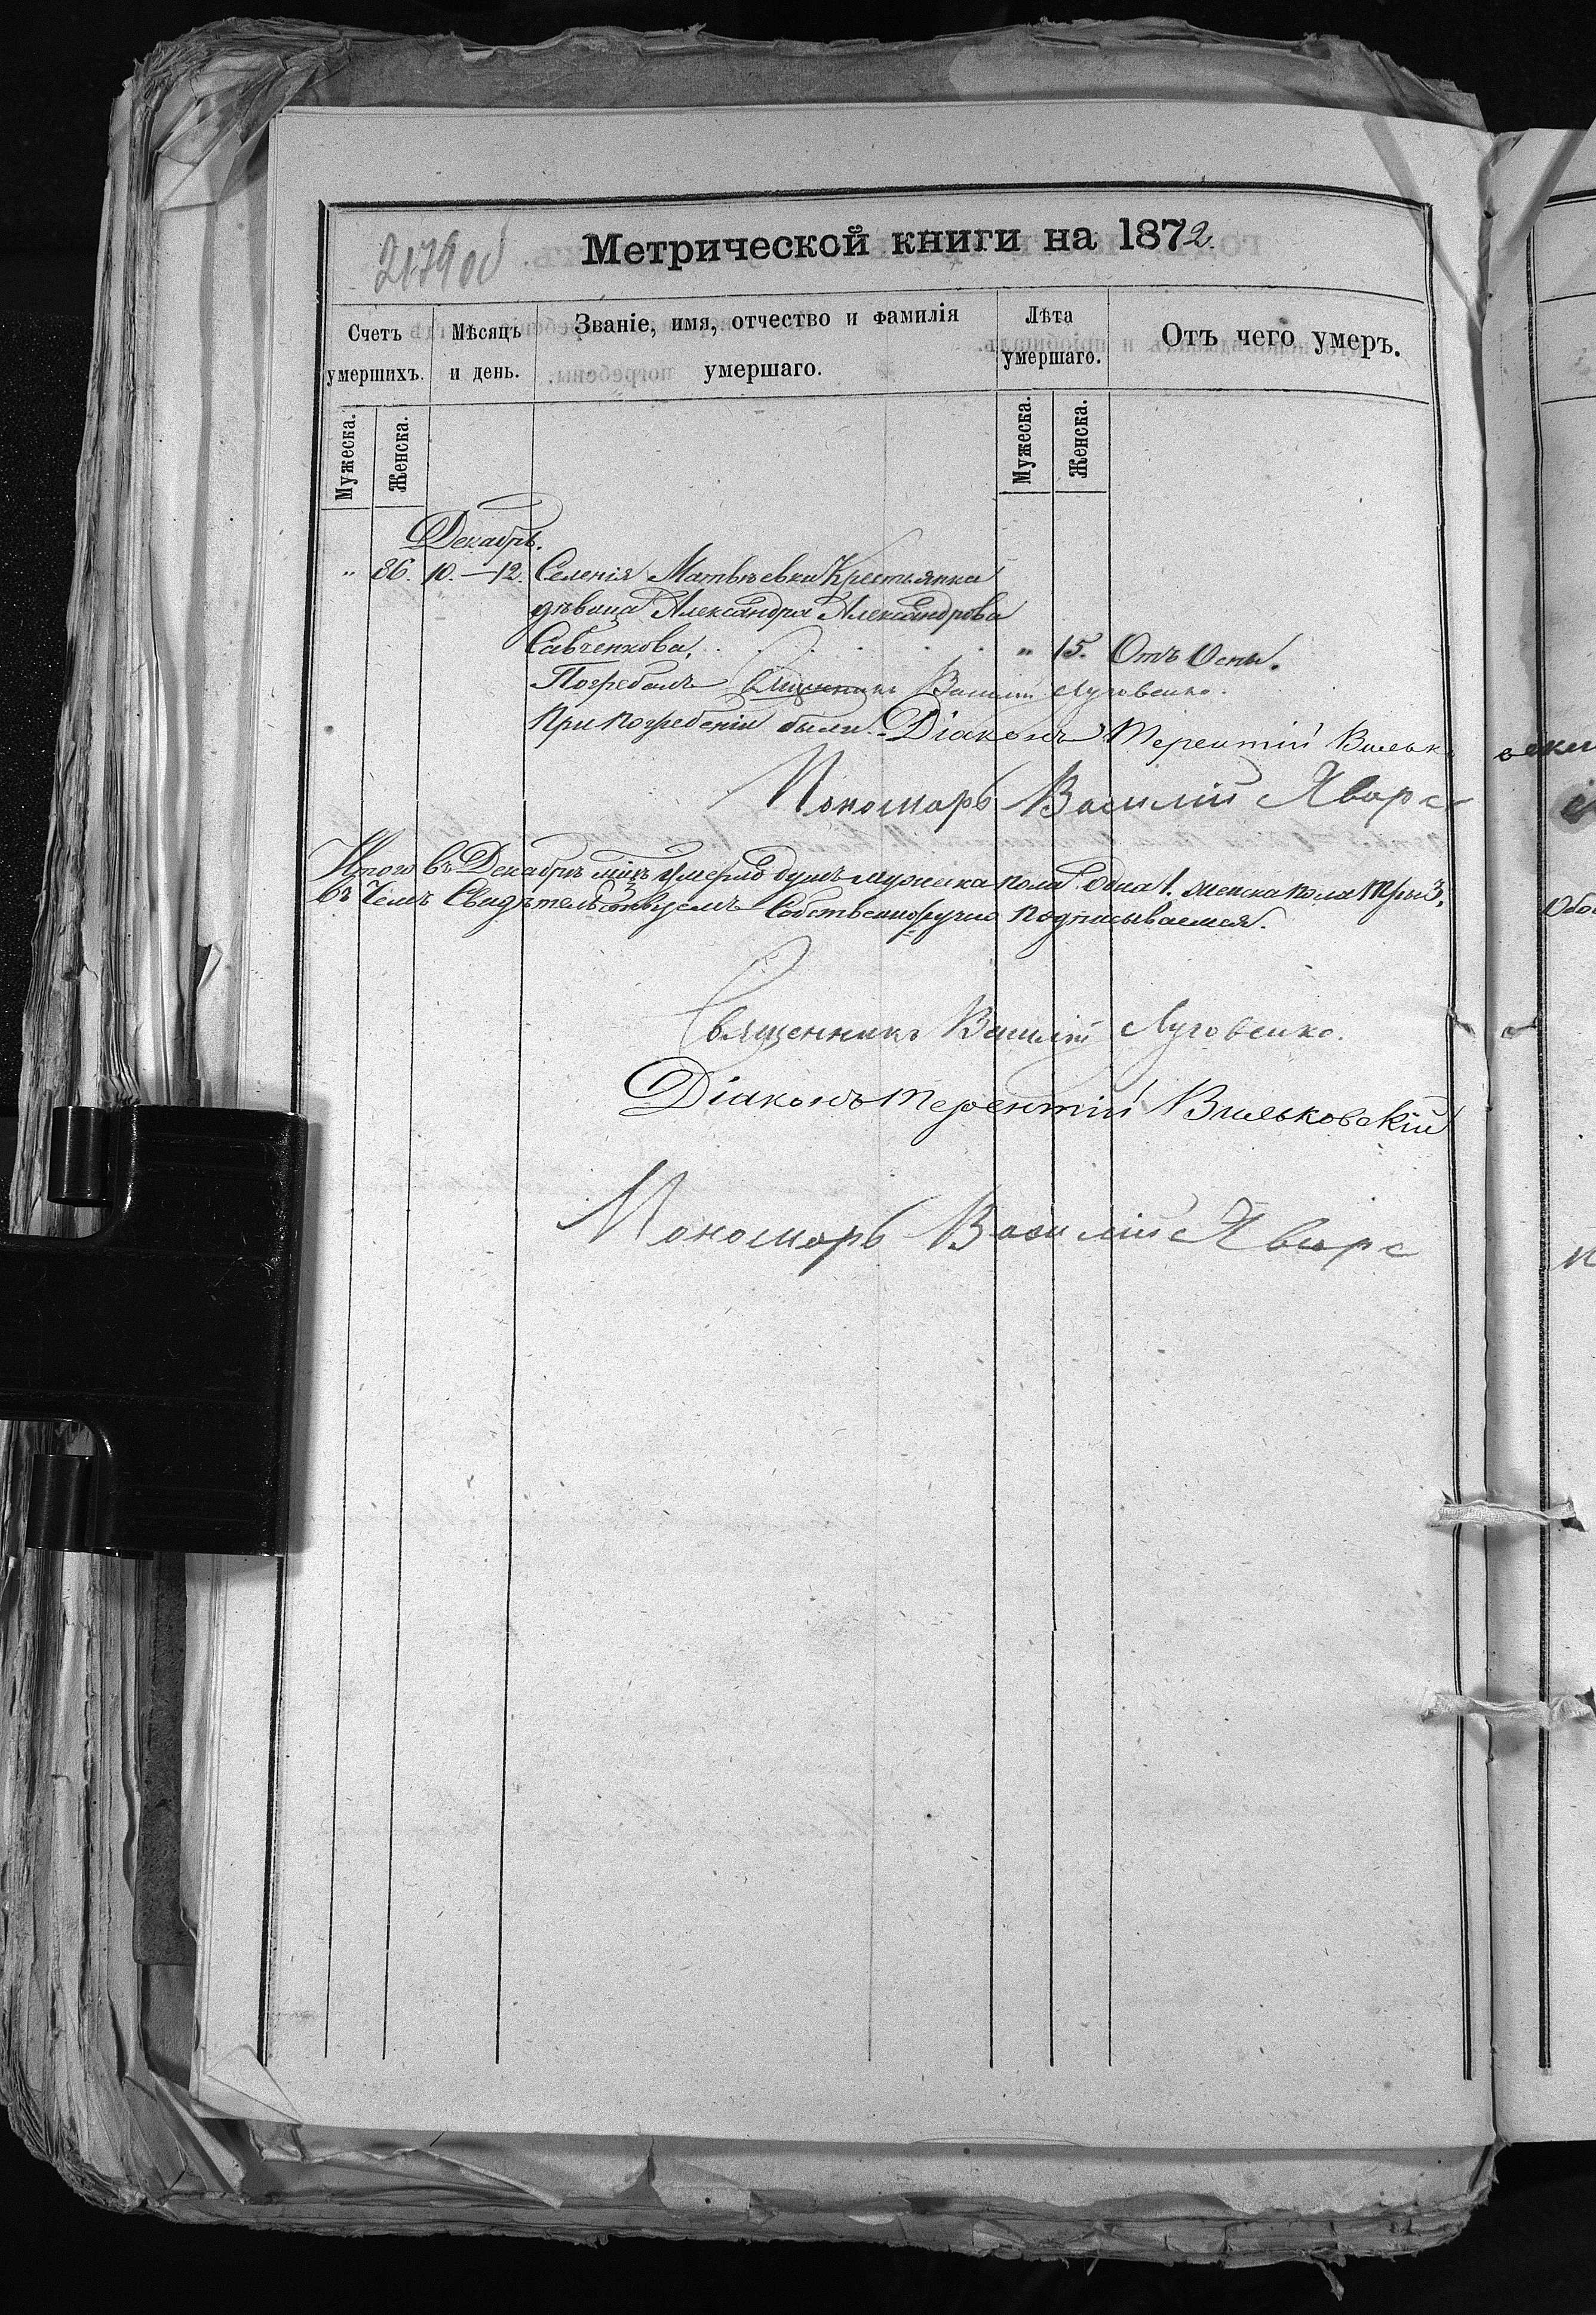 2179 об
Метрической книги на 1872.
Счетъ умершихъ.
Мѣсяцъ и день.
Званіе, имя, отчество и фамилія умершаго.
Лѣта умершаго.
Отъ чего умеръ.
Мужеска.
Женска.
Мужеска.
Женска.
Декабрь.
„ 86. 10.—12. Селенія Матвѣевки Крестьянка
дѣвица Александра Александрова
Савченкова, . . . . „ 15. Отъ Оспы.
Погребалъ Священникъ Василій Луговенко.
При погребеніи были: Діаконъ Терентій Вильк
Пономарь Василій Яворс
Итого въ Декабрѣ м҃цѣ умерло душъ мужеска пола одна 1. женска пола три 3,
Въ чемъ Свидѣтельствуемъ Собственноручно подписываемся.
Священникъ Василій Луговенко.
Діаконъ Терентій Вильковскій
Пономарь Василій Яворс